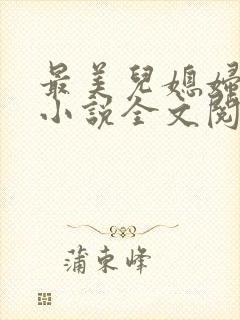 最美兒媳婦
小說全文閱
蒲東峰